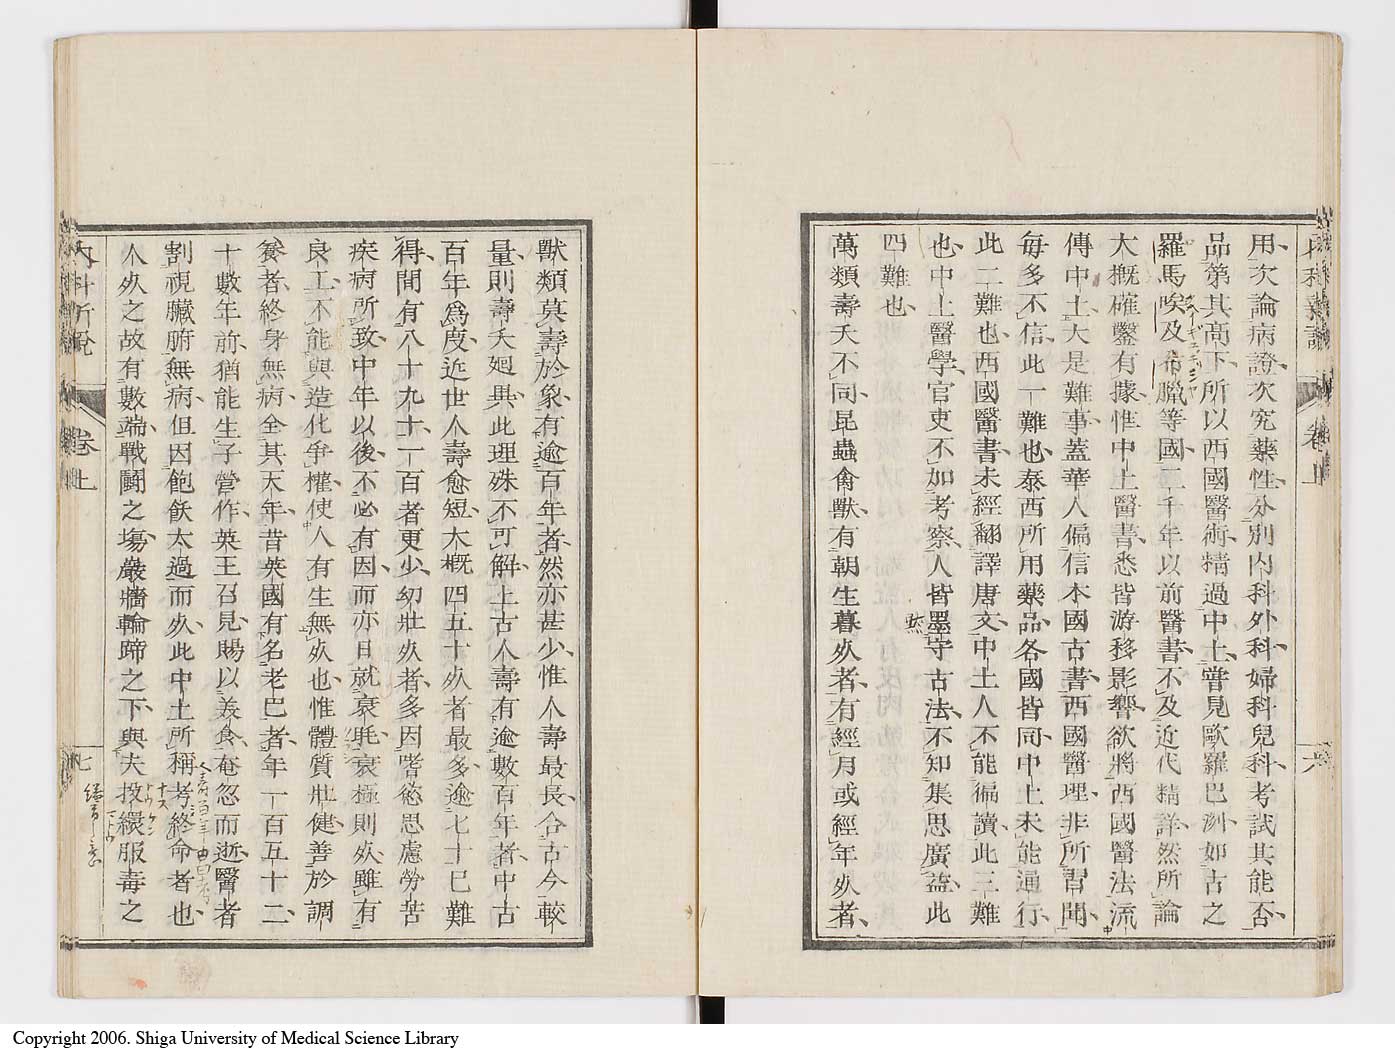 用次論病證次究藥性分別內科外科婦科兒科考試其能否
品第其高下所以西國醫術精過中土嘗見歐羅巴洲如古之
羅馬唉及希臘等國二千年以前醫書不及近代精詳然所論
大概確鑿有據惟中土醫書悉皆游移影響欲將西國醫法流
傳中土大是難事蓋華人偏信本國古書西國醫理非所習聞
每多不信此一難也泰西所用藥品各國皆同中土未能通行
此二難也西國醫書未經翻譯唐文中土人不能徧讀此三難
也中土醫學官吏不加考察人皆墨守古法不知集思廣益此
四難也
萬類壽夭不同昆蟲禽獸有朝生暮死者有經月或經年死者
內科新說
卷上
六
獸類莫壽於象有逾百年者然亦甚少惟人壽最長合古今較
量則壽夭迴異此理殊不可解上古人壽有逾數百年者中古
百年為度近世人壽愈短大概四五十死者最多逾七十已難
得間有八十九十一百者更少幼壯死者多因嗜慾思慮勞苦
疾病所致中年以後不必有因而亦日就衰眊衰極則死雖有
良工不能與造化爭權使人有生無死也惟體質壯健善於調
養者終身無病全其天年昔英國有名老巴者年一百五十二
十數年前猶能生子營作英王召見賜以美食奄忽而逝醫者
割視臟腑無病但因飽飫太過而死此中土所稱考終命者也
人死之故有數端戰鬪之塲巖牆輪蹄之下與夫投繯服毒之
內科新說
卷上
七
Copyright 2006. Shiga University of Medical Science Library